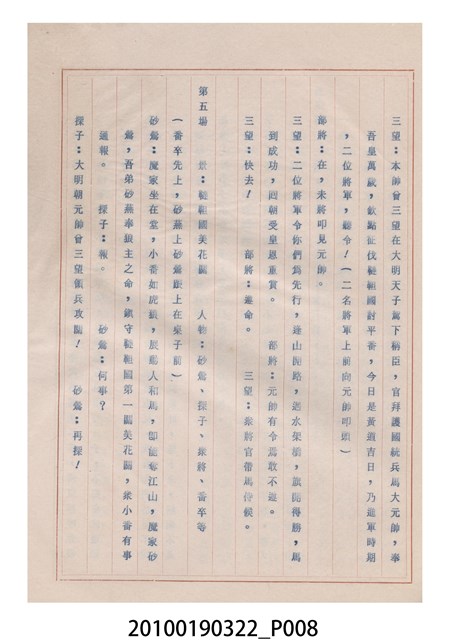 三望：本帥曾三望在大明天子駕下稱臣，官拜護國統兵馬大元帥，奉
吾皇萬歲，欽點征伐韃靼國討平番，今日是黃道吉日，乃進軍時期
，二位將軍，聽令！（二名將軍上前向元帥叩頭）
部將：在，末將叩見元帥。
三望：二位將軍令你們為先行，逢山開路，遇水架橋，旗開得勝，馬
到成功，回朝受皇恩重賞。　部將：元帥有令焉敢不遵。
三望：快去！　部將：遵命。　三望：衆將官帶馬侍候。
第五場　景：韃靼國美花關　人物：砂鴦、探子、衆將、番卒等
（番卒先上，砂燕上砂鴦康上在桌子前）
砂鴦：魔家坐在堂，小番如虎狼，辰鳳人和馬，即能奪江山，魔家砂
鴦，吾弟砂燕奉狼主之命，鎮守韃靼國第一關美花關，衆小番有事
通報。　探子：報。　砂鴦：何事？
探子：大明朝元帥曾三望領兵攻關！　砂鴦：再探！
20100190322_P008